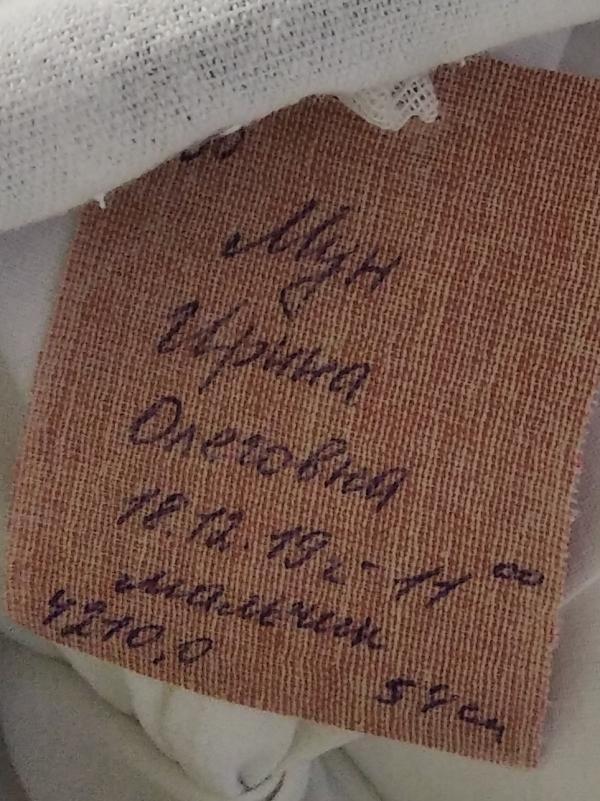 Мун
Ирина
Олеговна
18.12.19г - 11 00
мальчик
4210,0
57 см